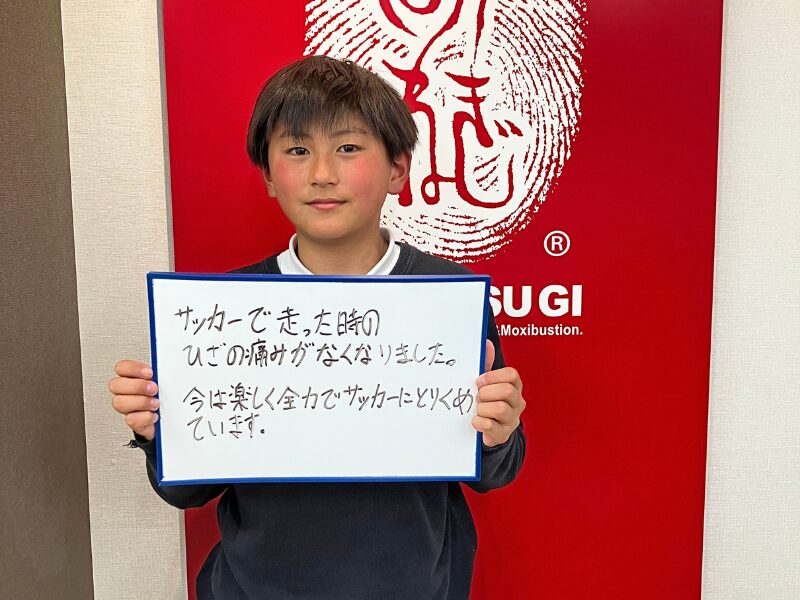 ®
SUGI
&Moxibustion.
サッカーで走った時の
ひざの痛みがなくなりました。
今は楽しく全力でサッカーにとりくめ
ています。